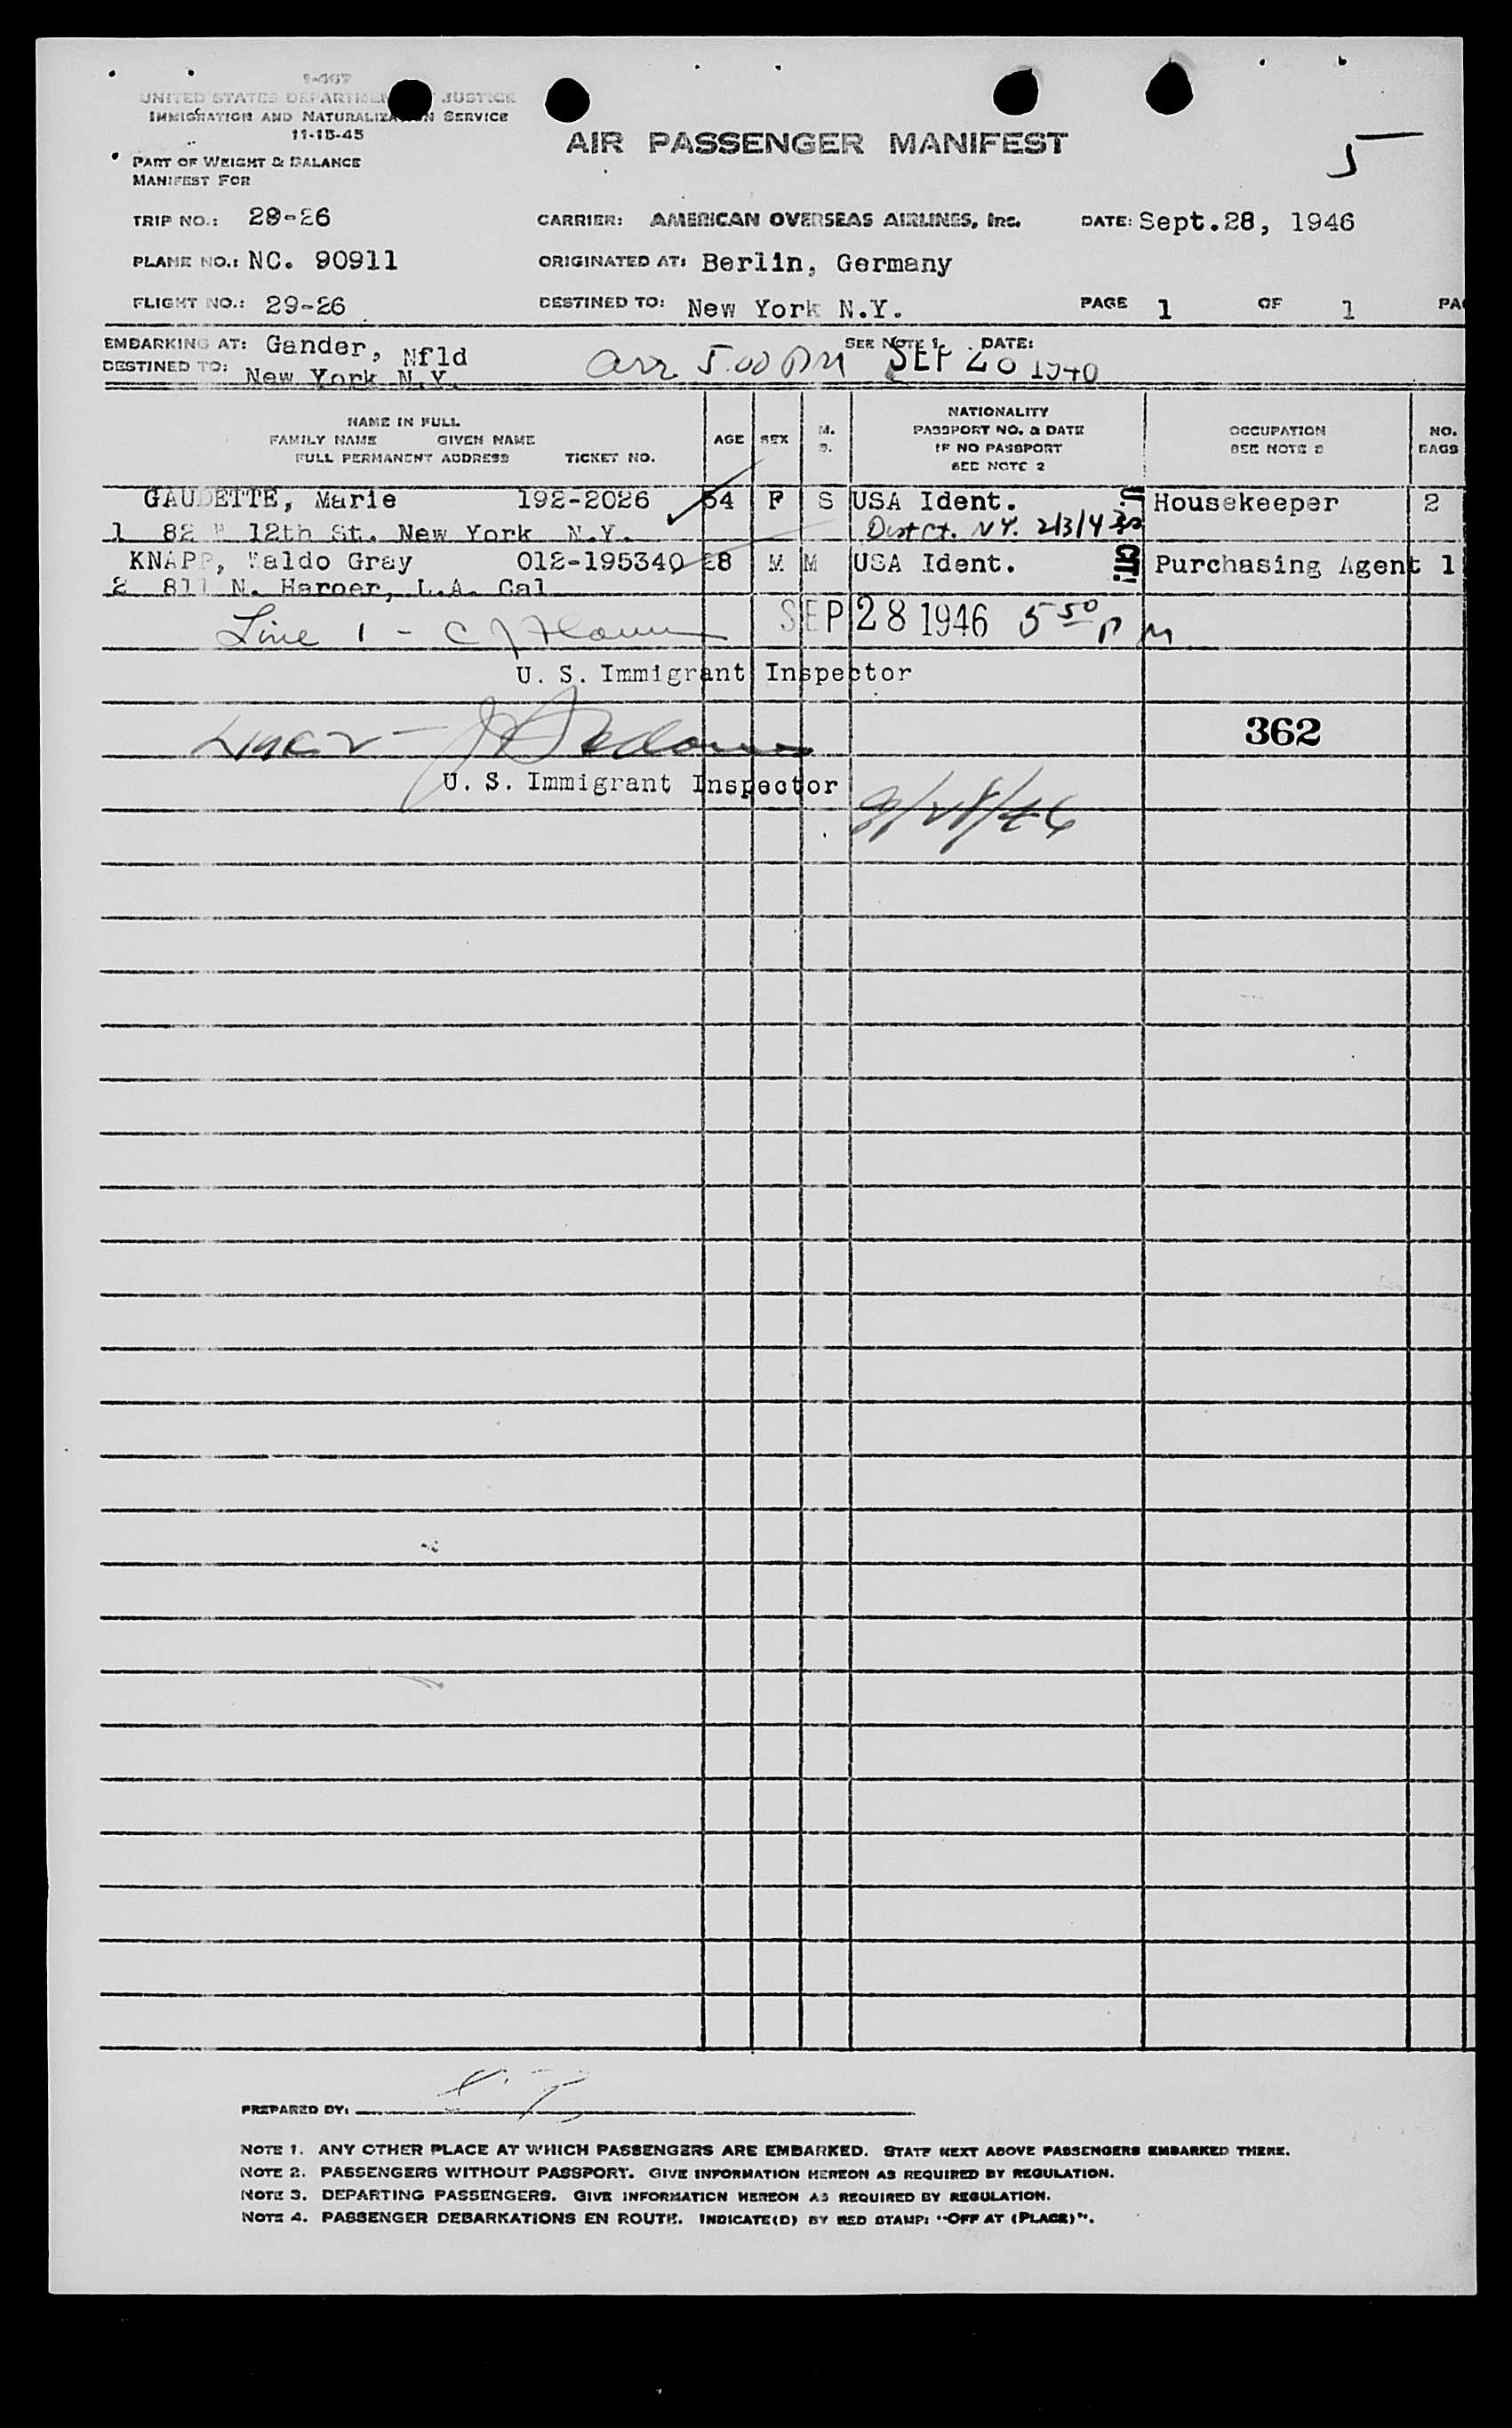 I-467
UNITED STATES DEPARTMENT JUSTICE
IMMIGRATION AND NATURALIZATION SERVICE
11-15-45
PART OF WEIGHT & BALANCE
MANIFEST FOR
AIR PASSENGER MANIFEST
5
TRIP NO.: 29-26 CARRIER: AMERICAN OVERSEAS AIRLINES, Inc. DATE: Sept.28, 1946
PLANE NO.: NC. 90911 ORIGINATED AT: Berlin, Germany
FLIGHT NO.: 29-26 DESTINED TO: New York N.Y. PAGE 1 OF 1 PA
EMBARKING AT: Gander, Nfld SEE NOTE 1. DATE:
DESTINED TO: New York N.Y. arr 5.00 PM SEP 28 1946
NAME IN FULL
FAMILY NAME GIVEN NAME
FULL PERMANENT ADDRESS TICKET NO.
AGE SEX M. S.
NATIONALITY
PASSPORT NO. & DATE
IF NO PASSPORT
SEE NOTE 2
OCCUPATION
SEE NOTE 3
NO.
BAGS
GAUDETTE, Marie 192-2026 54 F S USA Ident. Housekeeper 2
1 82 W 12th St. New York N.Y. Dist Ct. N.Y. U.S. CIT.
KNAPP, Waldo Gray 012-195340 28 M M USA Ident. Purchasing Agent 1
2 811 N. Harper, L.A. Cal
Line 1 - SEP 28 1946 5 50 P M
U. S. Immigrant Inspector
Line 2 - 362
U. S. Immigrant Inspector
9/28/46
PREPARED BY:
NOTE 1. ANY OTHER PLACE AT WHICH PASSENGERS ARE EMBARKED. STATE NEXT ABOVE PASSENGERS EMBARKED THERE.
NOTE 2. PASSENGERS WITHOUT PASSPORT. GIVE INFORMATION HEREON AS REQUIRED BY REGULATION.
NOTE 3. DEPARTING PASSENGERS. GIVE INFORMATION HEREON AS REQUIRED BY REGULATION.
NOTE 4. PASSENGER DEBARKATIONS EN ROUTE. INDICATE(D) BY RED STAMP: "OFF AT (PLACE)".